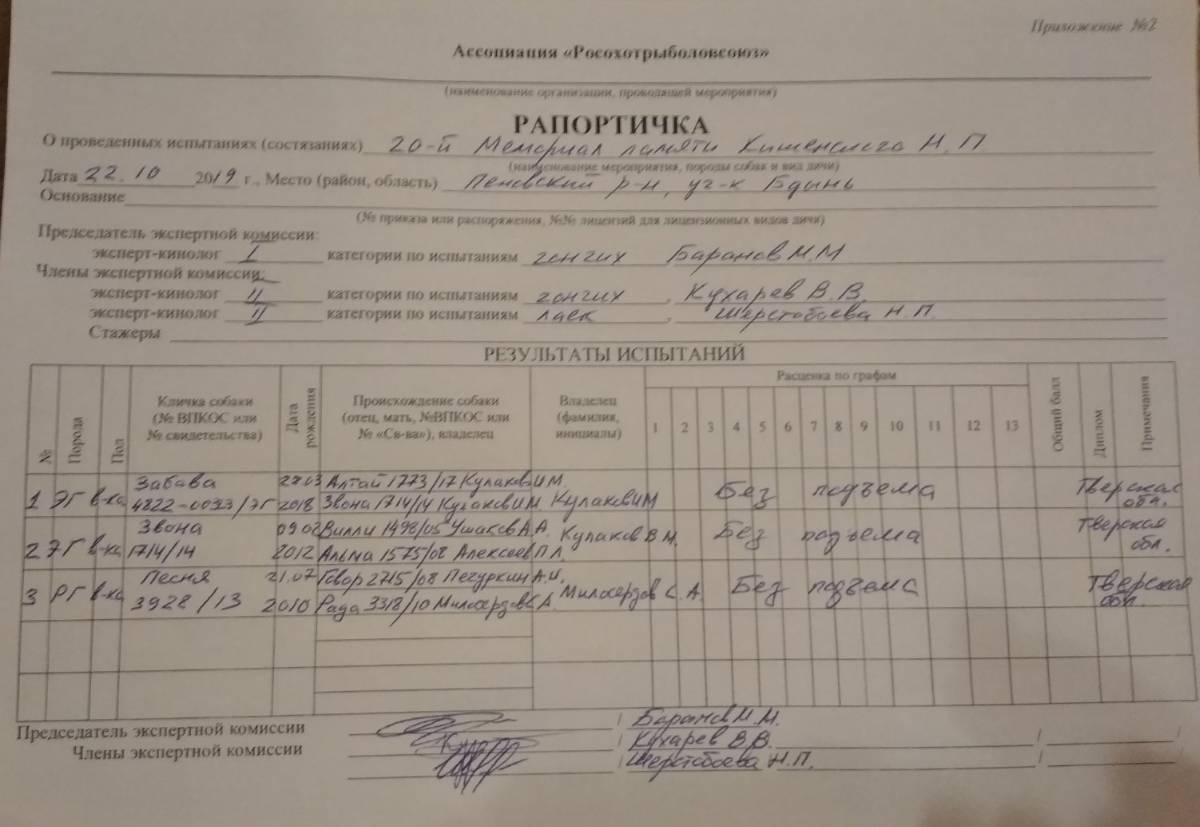 Приложение №2
Ассоциация «Росохотрыболовсоюз»
(наименование организации, проводящей мероприятия)
РАПОРТИЧКА
О проведенных испытаниях (состязаниях) 20-й Мемориал памяти Кишенского Н.П
(наименование мероприятия, породы собак и вид дичи)
Дата 22.10 2019 г., Место (район, область) Пеновский р-н, уч-к Бдынь
Основание
(№ приказа или распоряжения, №№ лицензий для лицензионных видов дичи)
Председатель экспертной комиссии:
эксперт-кинолог I категории по испытаниям гончих Баранов И.М
Члены экспертной комиссии:
эксперт-кинолог II категории по испытаниям гончих, Кухарев В.В.
эксперт-кинолог II категории по испытаниям лаек, Шерстобоева Н.П.
Стажеры
РЕЗУЛЬТАТЫ ИСПЫТАНИЙ
№ Порода Пол Кличка собаки (№ ВПКОС или № свидетельства) Дата рождения Происхождение собаки (отец, мать, №ВПКОС или № «Св-ва»), владелец Владелец (фамилия, инициалы) Расценка по графам 1 2 3 4 5 6 7 8 9 10 11 12 13 Общий балл Диплом Примечания
Забава 2803 Алтай 1773/17 Кулаков И.М.
1 ЭГ в-ка 4822-0093/ЭГ 2018 Звона 1714/14 Кулаков И.М. Кулаков И М Без подъема Тверская обл.
Звона 0902 Вилли 1498/05 Ушаков А.А.
2 ЭГ в-ка 1714/14 2012 Альма 1575/08 Алексеев П.Л. Кулаков В М. Без подъема Тверская обл.
Песня 21.07 Говор 2715/08 Печуркин А.И.
3 РГ в-ка 3928/13 2010 Рада 3318/10 Милосердов С.А. Милосердов С.А. Без подъема Тверская обл.
Председатель экспертной комиссии / Баранов И.М. /
Члены экспертной комиссии / Кухарев В.В. /
/ Шерстобоева Н.П. /